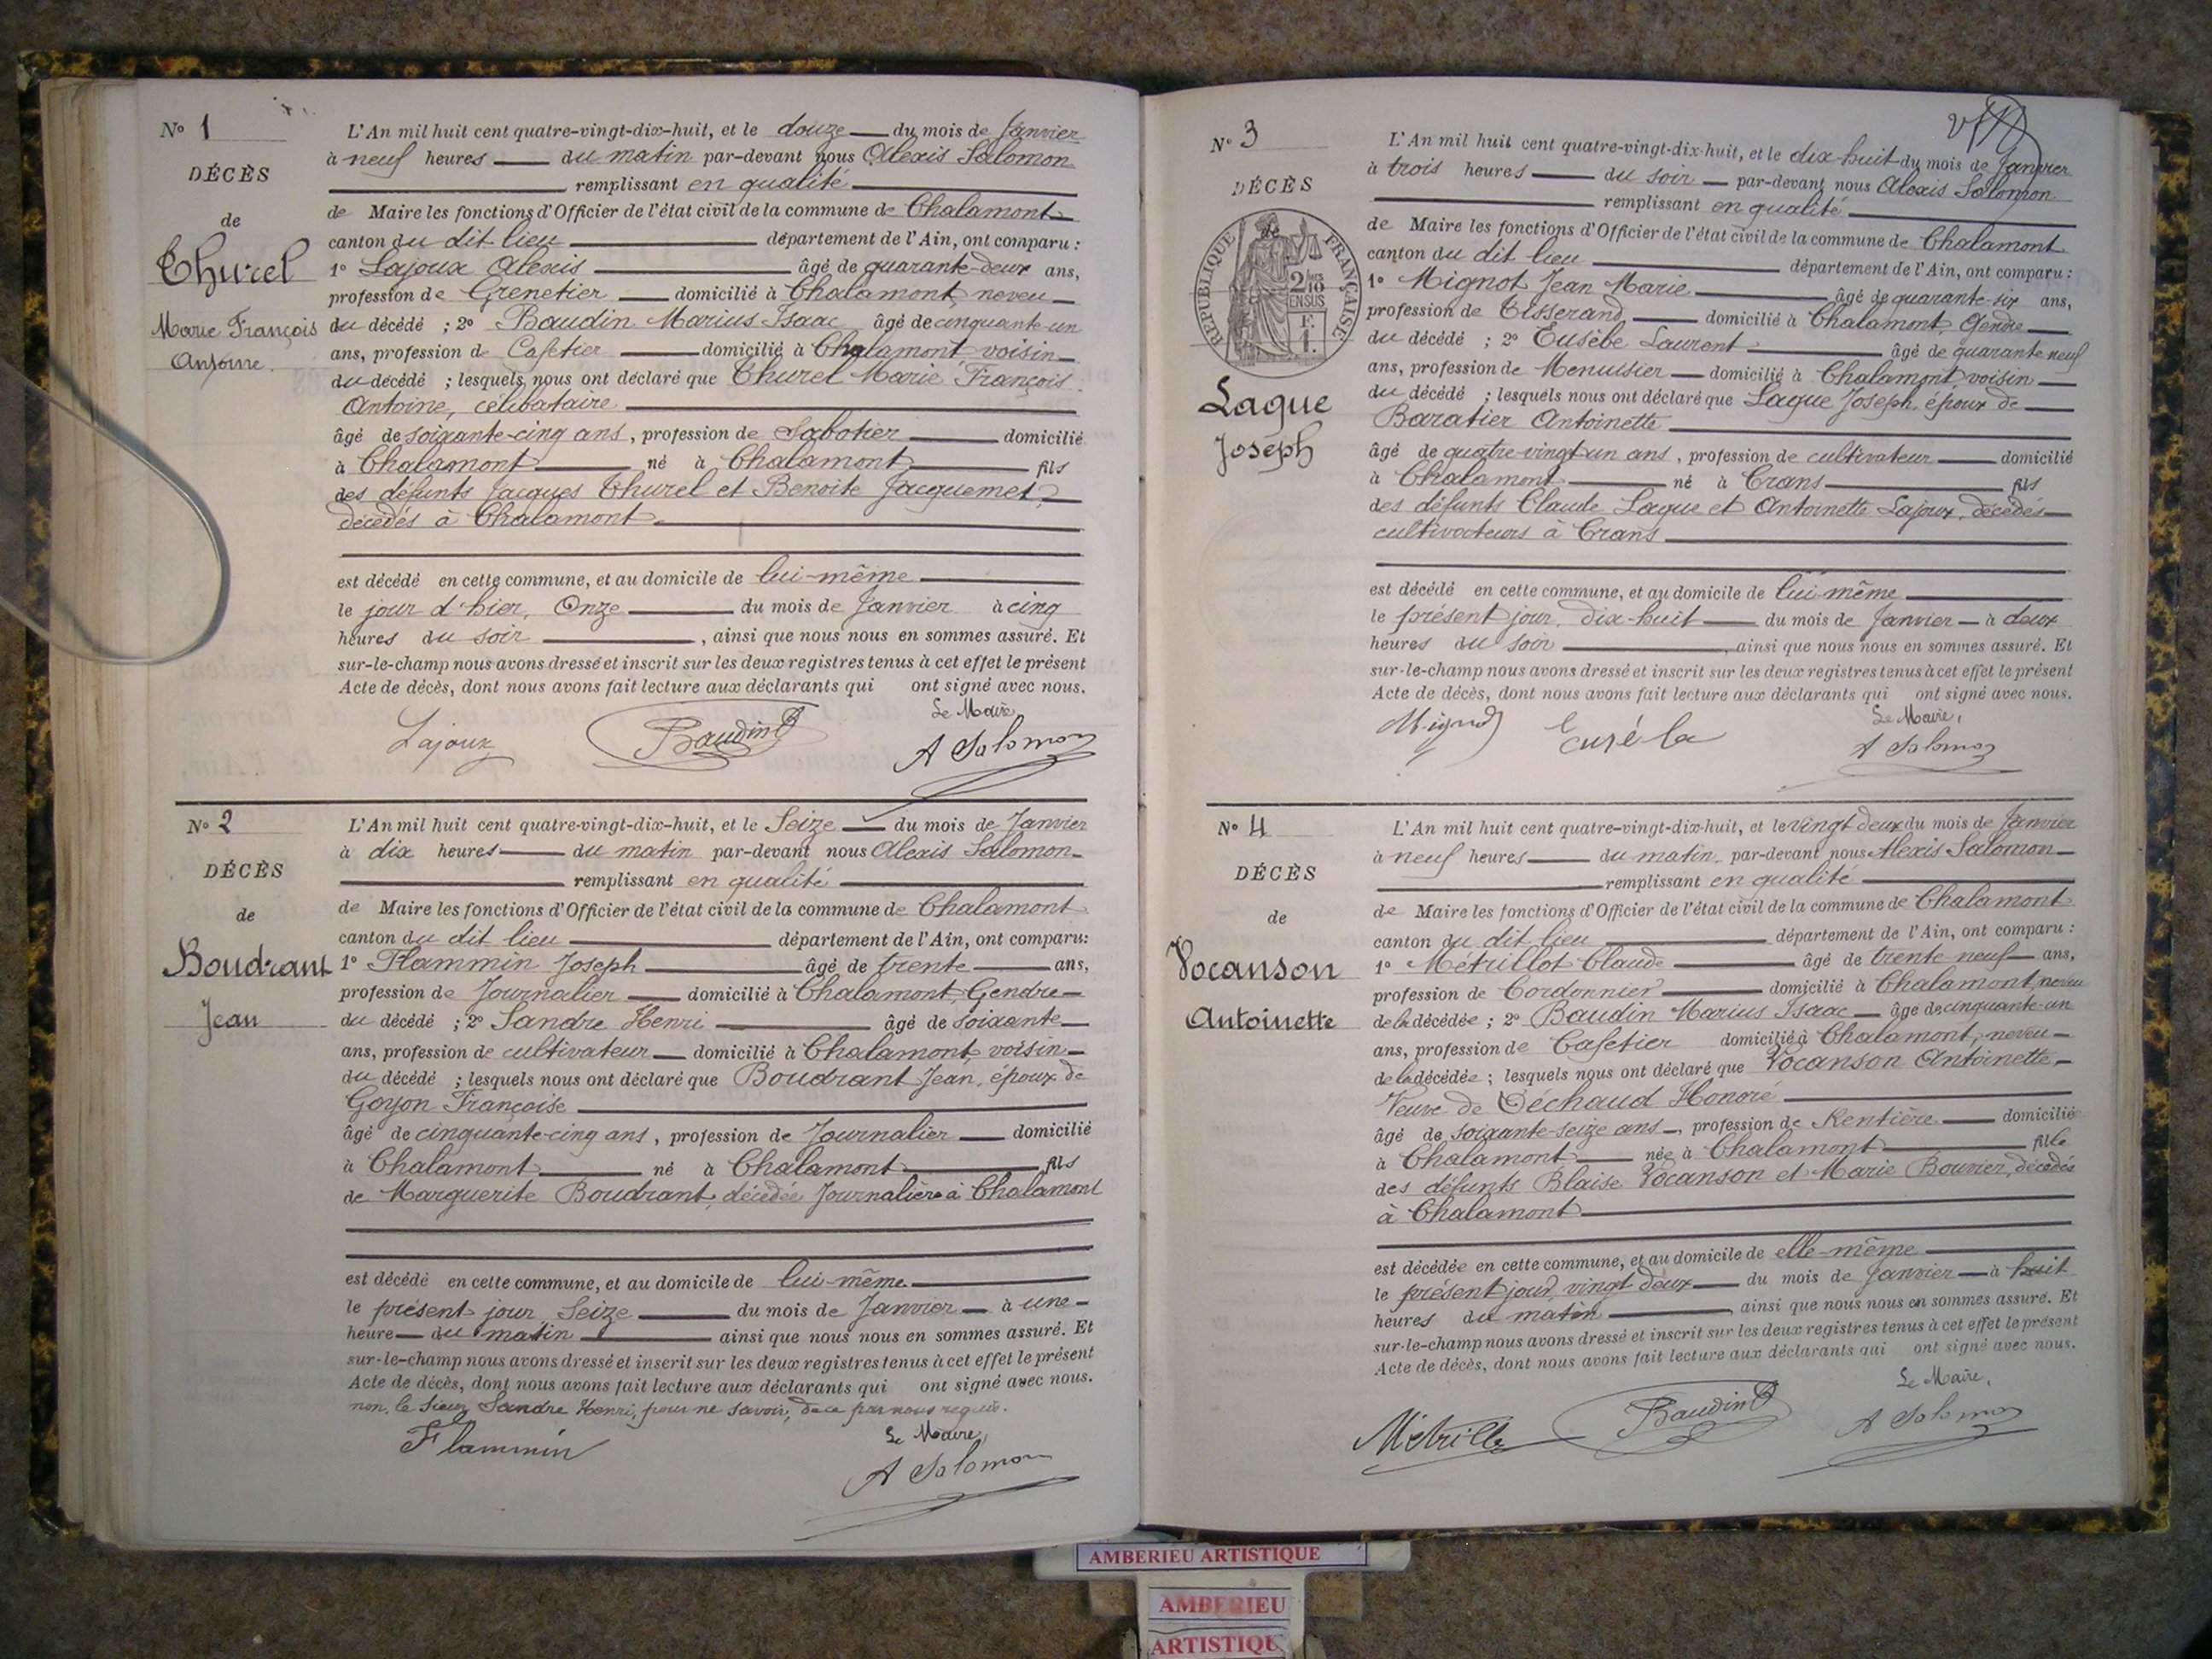 N° 1
DÉCÈS
de
Thurel
Marie François
Antoine.
L'An mil huit cent quatre-vingt-dix-huit, et le douze du mois de Janvier
à neuf heures du matin par-devant nous Alexis Salomon
remplissant en qualité
de Maire les fonctions d'Officier de l'état civil de la commune de Chalamont
canton du dit lieu département de l'Ain, ont comparu :
1° Lajoux Alexis âgé de quarante-deux ans,
profession de Grenetier domicilié à Chalamont, neveu
du décédé ; 2° Baudin Marius Isaac âgé de cinquante-un
ans, profession de Cafetier domicilié à Chalamont voisin
du décédé ; lesquels nous ont déclaré que Thurel Marie François
Antoine, célibataire
âgé de soixante-cinq ans, profession de Sabotier domicilié
à Chalamont né à Chalamont fils
des défunts Jacques Thurel et Benoite Jacquemet,
décédés à Chalamont.
est décédé en cette commune, et au domicile de lui-même
le jour d'hier, Onze du mois de Janvier à cinq
heures du soir, ainsi que nous nous en sommes assuré. Et
sur-le-champ nous avons dressé et inscrit sur les deux registres tenus à cet effet le présent
Acte de décès, dont nous avons fait lecture aux déclarants qui ont signé avec nous.
Le Maire,
Lajoux Baudin A Salomon
N° 2
DÉCÈS
de
Boudrant
Jean
L'An mil huit cent quatre-vingt-dix-huit, et le Seize du mois de Janvier
à dix heures du matin par-devant nous Alexis Salomon
remplissant en qualité
de Maire les fonctions d'Officier de l'état civil de la commune de Chalamont
canton du dit lieu département de l'Ain, ont comparu :
1° Flammin Joseph âgé de trente ans,
profession de Journalier domicilié à Chalamont, Gendre
du décédé ; 2° Sandre Henri âgé de soixante
ans, profession de cultivateur domicilié à Chalamont voisin
du décédé ; lesquels nous ont déclaré que Boudrant Jean, époux de
Goyon Françoise
âgé de cinquante-cinq ans, profession de Journalier domicilié
à Chalamont né à Chalamont fils
de Marguerite Boudrant, décédée Journalière à Chalamont
est décédé en cette commune, et au domicile de lui-même.
le présent jour, Seize du mois de Janvier à une
heure du matin ainsi que nous nous en sommes assuré. Et
sur-le-champ nous avons dressé et inscrit sur les deux registres tenus à cet effet le présent
Acte de décès, dont nous avons fait lecture aux déclarants qui ont signé avec nous.
non, le sieur Sandre Henri, pour ne savoir, de ce par nous requis.
Le Maire,
Flammin A Salomon
N° 3
DÉCÈS
RÉPUBLIQUE FRANÇAISE
2/10 EN SUS
F. 1.
Laque
Joseph
L'An mil huit cent quatre-vingt-dix-huit, et le dix-huit du mois de Janvier
à trois heures du soir par-devant nous Alexis Salomon
remplissant en qualité
de Maire les fonctions d'Officier de l'état civil de la commune de Chalamont
canton du dit lieu département de l'Ain, ont comparu :
1° Mignot Jean Marie âgé de quarante-six ans,
profession de Tisserand domicilié à Chalamont, Gendre
du décédé ; 2° Eusèbe Laurent âgé de quarante neuf
ans, profession de Menuisier domicilié à Chalamont, voisin
du décédé ; lesquels nous ont déclaré que Laque Joseph, époux de
Baratier Antoinette
âgé de quatre-vingt un ans, profession de cultivateur domicilié
à Chalamont né à Crans fils
des défunts Claude Laque et Antoinette Lajoux, décédés
cultivateurs à Crans
est décédé en cette commune, et au domicile de lui-même
le présent jour, dix-huit du mois de Janvier à deux
heures du soir, ainsi que nous nous en sommes assuré. Et
sur-le-champ nous avons dressé et inscrit sur les deux registres tenus à cet effet le présent
Acte de décès, dont nous avons fait lecture aux déclarants qui ont signé avec nous.
Le Maire,
Mignot A Salomon
N° 4
DÉCÈS
de
Vocanson
Antoinette
L'An mil huit cent quatre-vingt-dix-huit, et le vingt deux du mois de Janvier
à neuf heures du matin, par-devant nous Alexis Salomon
remplissant en qualité
de Maire les fonctions d'Officier de l'état civil de la commune de Chalamont
canton du dit lieu département de l'Ain, ont comparu :
1° Métrillot Claude âgé de trente neuf ans,
profession de Cordonnier domicilié à Chalamont, neveu
de la décédée ; 2° Baudin Marius Isaac âgé de cinquante-un
ans, profession de Cafetier domicilié à Chalamont, neveu
de la décédée ; lesquels nous ont déclaré que Vocanson Antoinette,
Veuve de Déchaud Honoré
âgé de soixante-seize ans, profession de Rentière domiciliée
à Chalamont née à Chalamont fille
des défunts Blaise Vocanson et Marie Bouvier, décédés
à Chalamont
est décédée en cette commune, et au domicile de elle-même
le présent jour, vingt deux du mois de Janvier à huit
heures du matin, ainsi que nous nous en sommes assuré. Et
sur-le-champ nous avons dressé et inscrit sur les deux registres tenus à cet effet le présent
Acte de décès, dont nous avons fait lecture aux déclarants qui ont signé avec nous.
Le Maire,
Baudin A Salomon
AMBERIEU ARTISTIQUE
AMBERIEU
ARTISTIQU